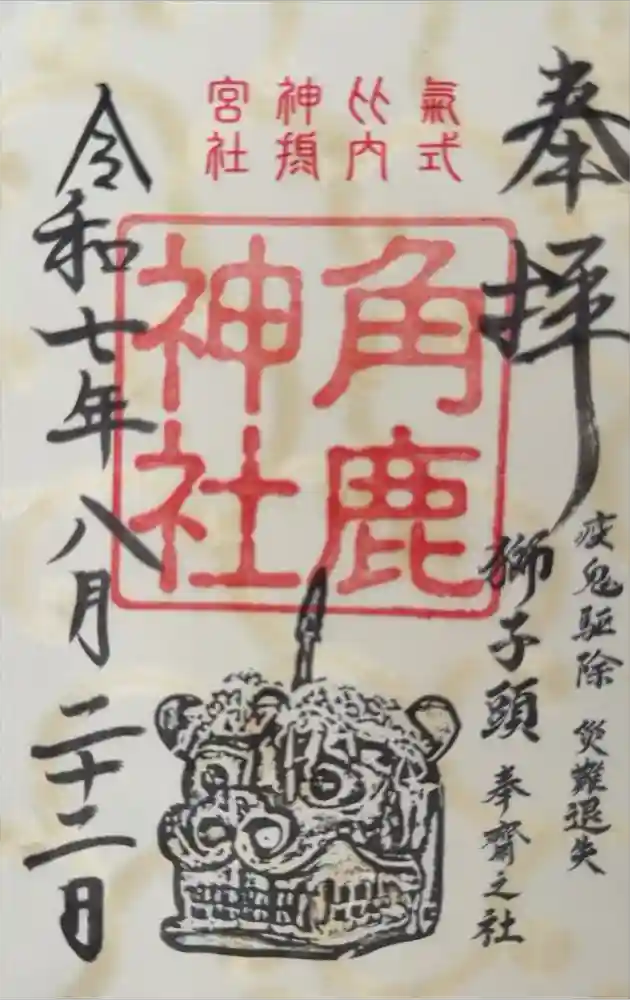 奉拝
疫鬼駆除 災難退失
獅子頭 奉齋之社
氣比神宮
式内摂社
角鹿
神社
令和七年八月二十二日